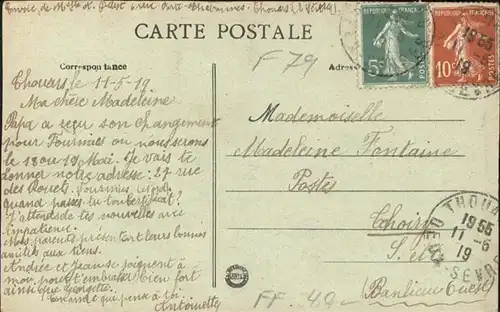 Envoie de
Thouars (2 Sèvres)
CARTE POSTALE
F 79
Correspondance
Adres
5c
10c
Thouars le 11-5-19
Ma chère Madeleine
Papa a reçu son changement
pour Fourmies où nous serons
le 18 ou 19 Mai. Je vais te
donner notre adresse : 27 rue
des Rouets. Fourmies (Nord)
quand passes tu ton certificat ?
J'attends de tes nouvelles avec
impatience.
Mes parents présentent leurs bonnes
amitiés aux tiens.
Andrée et Jeanne se joignent à
moi pour t'embrasser bien fort
ainsi que Georgette.
Ton amie qui pense à toi.
Antoinette
Mademoiselle
Madeleine Fontaine
Postes
Choisy
S. et
(Banlieue Ouest)
FF 40
THOUARS
19 55
11 -5
19